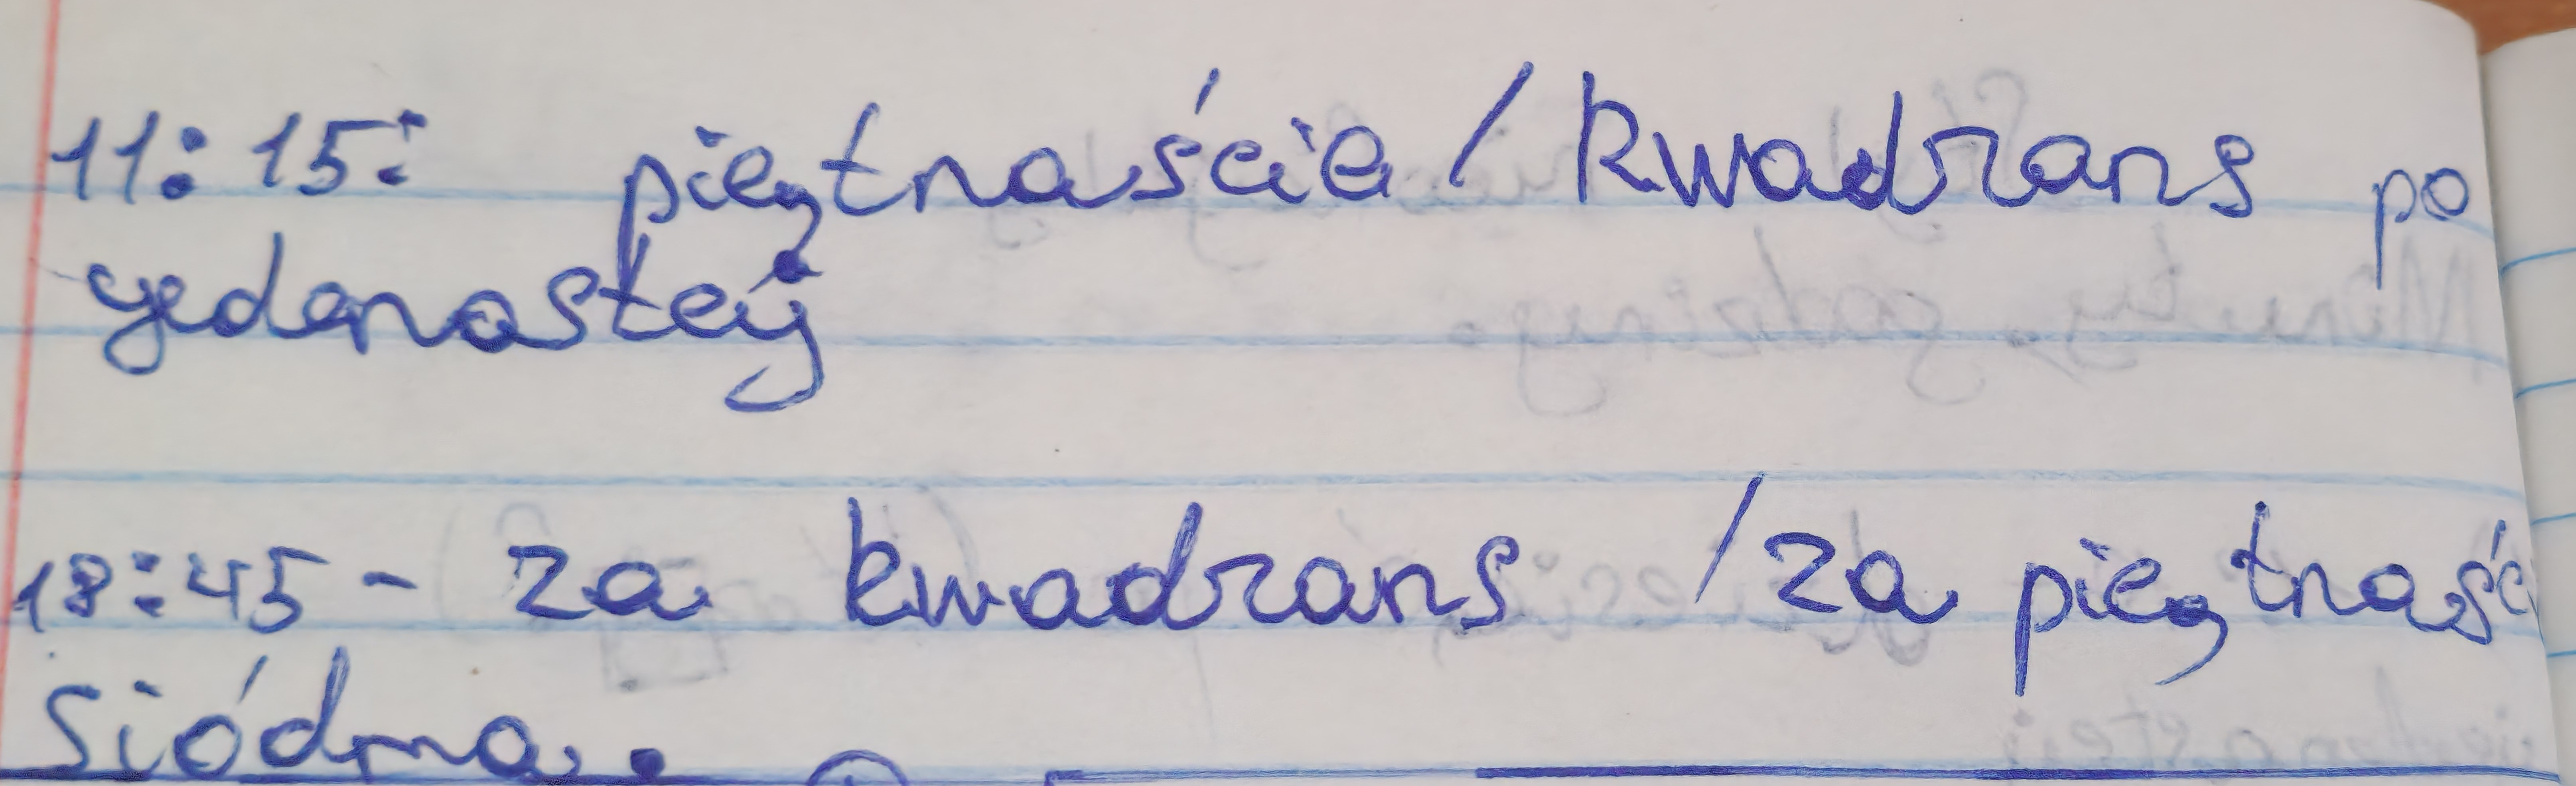 11:15: piętnaście / kwadrans po
jedenastej
18:45 - za kwadrans / za piętnaśc
siódma.